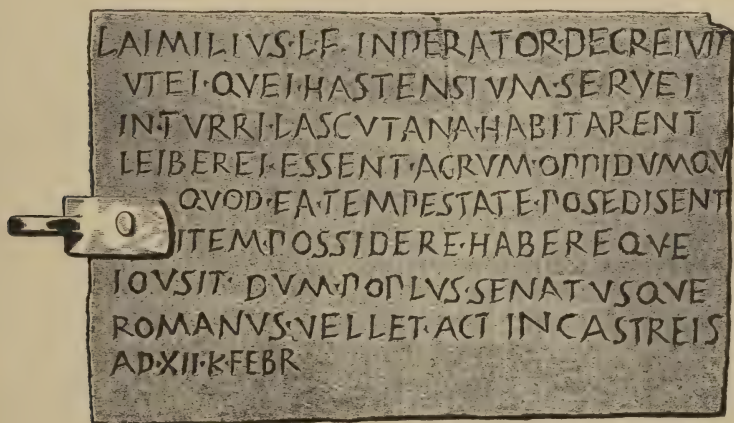 LAIMILIVS·L·F·INPERATOR·DECREIVIT
VTEI·QVEI·HASTENSIVM·SERVEI
IN·TVRRI·LASCVTANA·HABITARENT
LEIBEREI·ESSENT·AGRVM·OPPIDVMQV
QVOD·EA·TEMPESTATE·POSEDISENT
ITEM·POSSIDERE·HABEREQVE
IOVSIT·DVM·POPLVS·SENATVSQVE
ROMANVS·VELLET·ACT IN CASTREIS
AD·XII·K·FEBR